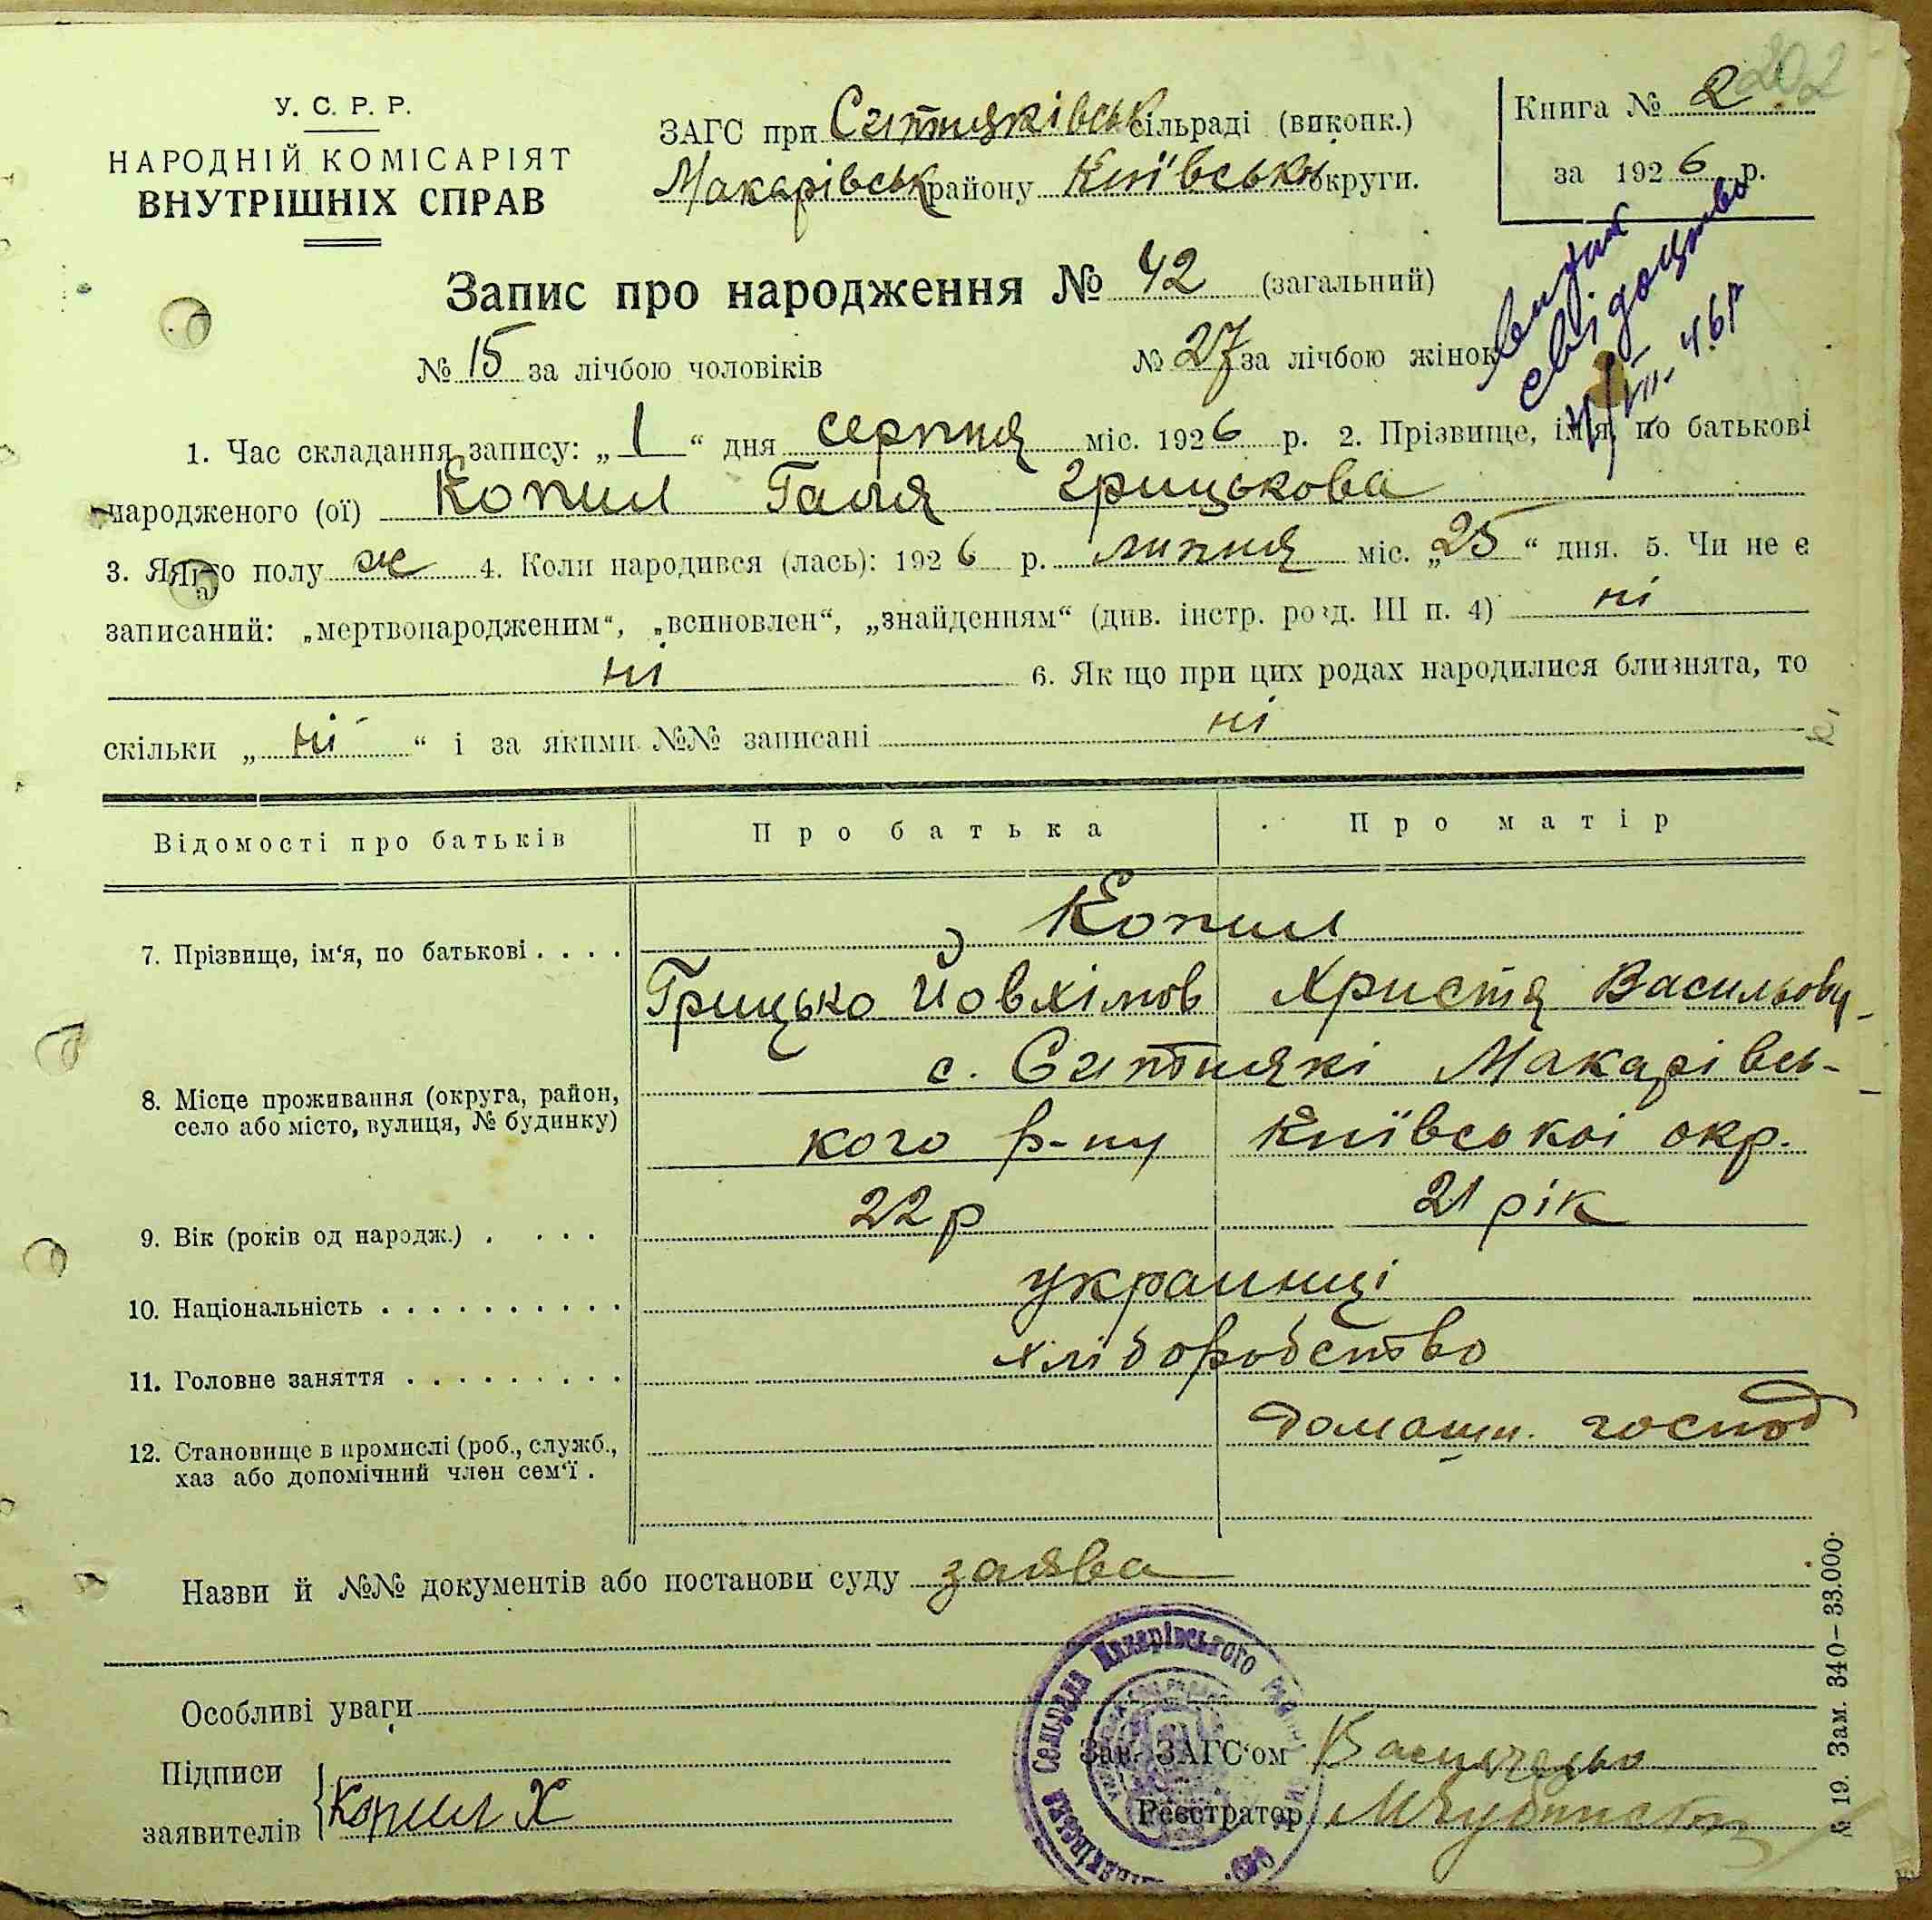 202
У. С. Р. Р.
НАРОДНІЙ КОМІСАРІЯТ
ВНУТРІШНІХ СПРАВ
ЗАГС при Ситняківськ сільраді (виконк.)
Макарівськ району Київськ округи.
Книга № 2
за 1926 р.
Видан
свідоцтво
VII- 46р
Запис про народження № 42 (загальний)
№ 15 за лічбою чоловіків № 27 за лічбою жінок
1. Час складання запису: „1“ дня серпня міс. 1926 р. 2. Прізвище, ім'я, по батькові
народженого (ої) Копил Галя Грицькова
3. Якого полу ж 4. Коли народився (лась): 1926 р. липня міс. „25“ дня. 5. Чи не є
записаний: „мертвонародженим“, „всиновлен“, „знайденням“ (див. інстр. розд. III п. 4) ні
ні 6. Якщо при цих родах народилися близнята, то
скільки „ні“ і за якими №№ записані ні
Відомості про батьків Про батька Про матір
7. Прізвище, ім'я, по батькові . . . . Копил
Грицько Йовхімов Христя Васильову
8. Місце проживання (округа, район, с. Ситняки Макарівсь-
село або місто, вулиця, № будинку) кого р-ну Київськоі окр.
9. Вік (років од народж.) . . . . 22 р 21 рік
10. Національність . . . . . . . . . . українці
11. Головне заняття . . . . . . . . . хліборобство
12. Становище в промислі (роб., служб., домашн. господ
хаз або допомічний член сем'ї .
Назви й №№ документів або постанови суду заява
Особливі уваги
Підписи
заявителів Копил Х
Зав. ЗАГС'ом
Реєстратор
Сельрада Макарівського
№ 19. Зам. 340–33.000.